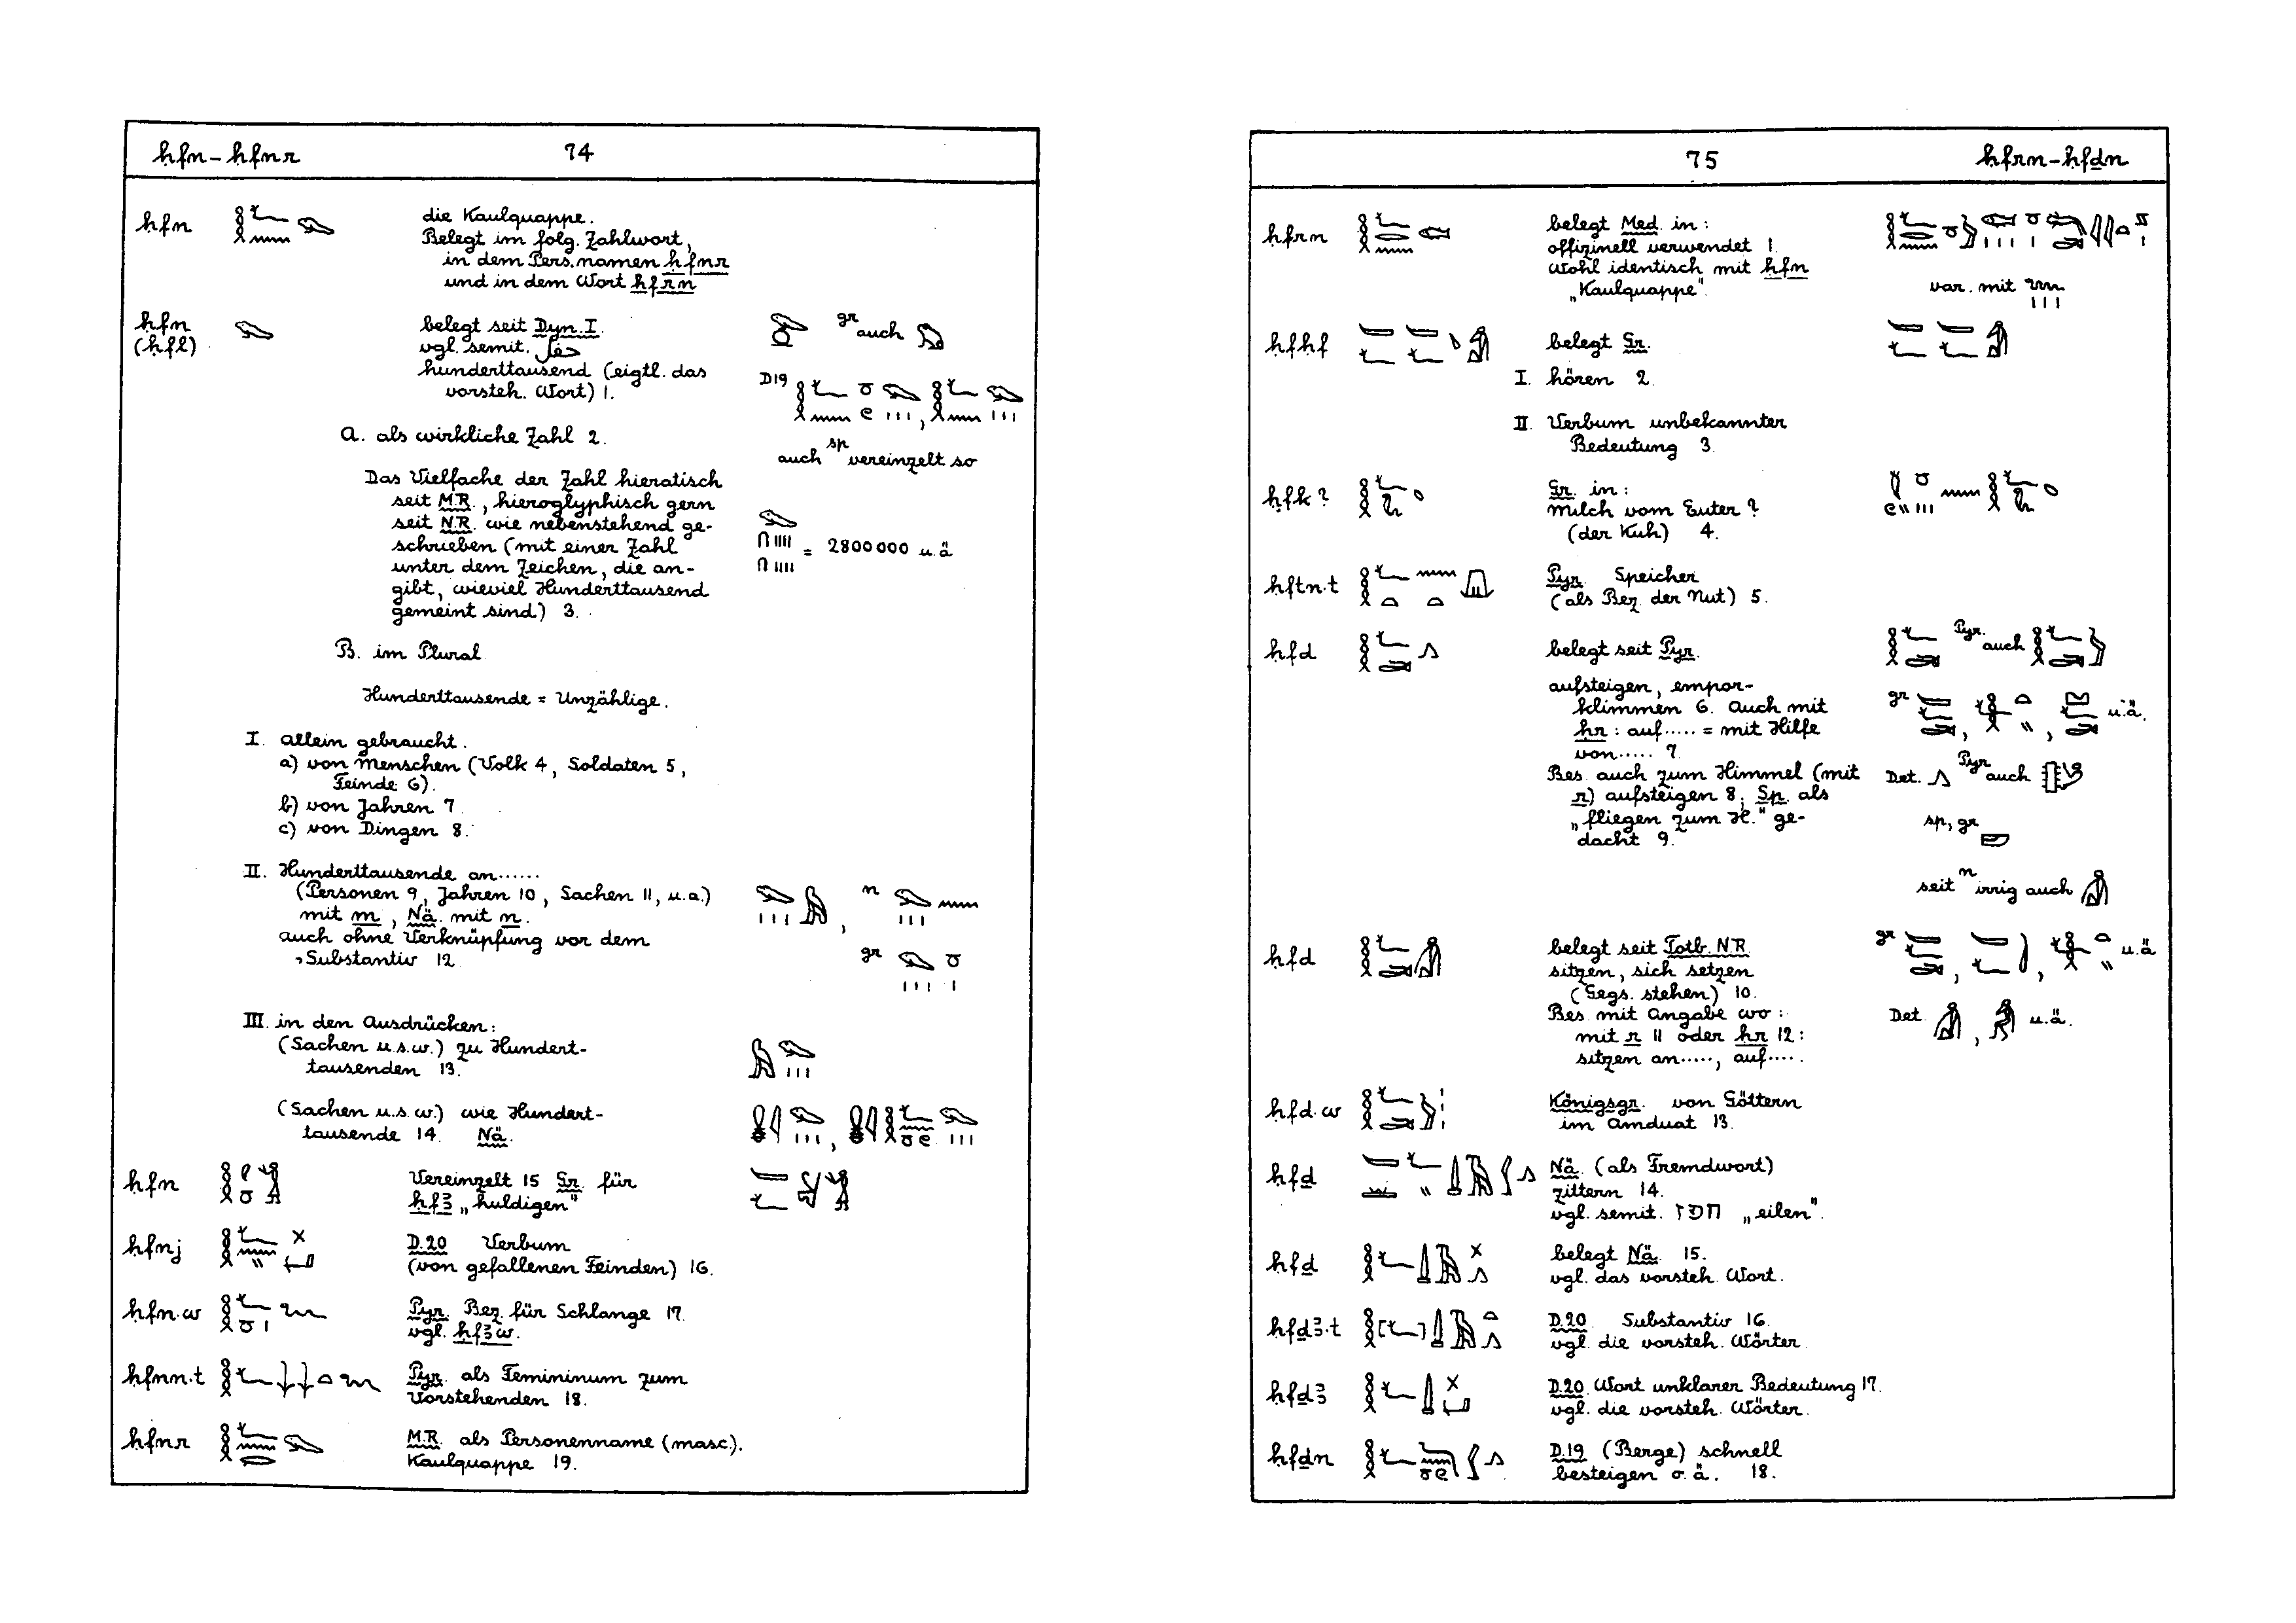 ḥfn – ḥfnr 74
ḥfn die Kaulquappe.
Belegt im folg. Zahlwort,
in dem Pers. namen ḥfnr
und in dem Wort ḥfrn
ḥfn
(ḥfl)
belegt seit Dyn. I. gr auch
vgl. semit.
hunderttausend (eigtl. das
vorsteh. Wort) 1.
D19
A. als wirkliche Zahl 2.
auch sp vereinzelt so
Das Vielfache der Zahl hieratisch
seit M.R., hieroglyphisch gern
seit N.R. wie nebenstehend ge-
schrieben (mit einer Zahl
unter dem Zeichen, die an-
gibt, wieviel Hunderttausend
gemeint sind) 3.
= 2800000 u.ä
B. im Plural
Hunderttausende = Unzählige.
I. allein gebraucht.
a) von Menschen (Volk 4, Soldaten 5,
Feinde 6).
b) von Jahren 7
c) von Dingen 8.
II. Hunderttausende an......
(Personen 9, Jahren 10, Sachen 11, u.a.)
mit m, Nä. mit n.
auch ohne Verknüpfung vor dem
Substantiv 12
n
gr
III. in den Ausdrücken:
(Sachen u.s.w.) zu Hundert-
tausenden 13.
(Sachen u.s.w.) wie Hundert-
tausende 14. Nä.
ḥfn Vereinzelt 15 Gr. für
ḥfꜣ „huldigen"
ḥfnj D.20 Verbum
(von gefallenen Feinden) 16.
ḥfn·w Pyr. Bez. für Schlange 17.
vgl. ḥfꜣw.
ḥfnn·t Pyr. als Femininum zum
Vorstehenden 18.
ḥfnr M.R. als Personenname (masc).
Kaulquappe 19.
75 ḥfrn – ḥfḏn
ḥfrn belegt Med. in:
offizinell verwendet 1.
Wohl identisch mit ḥfn
„Kaulquappe".
var. mit
ḥfḥf belegt Gr.
I. hören 2.
II. Verbum unbekannter
Bedeutung 3.
ḥfk ? Gr. in:
Milch vom Euter ?
(der Kuh) 4.
ḥftn·t Pyr. Speicher
(als Bez. der Nut) 5.
ḥfd belegt seit Pyr. Pyr. auch
aufsteigen, empor-
klimmen 6. Auch mit
ḥr : auf..... = mit Hilfe
von..... 7
gr , , u.ä.
Bes. auch zum Himmel (mit
r) aufsteigen 8; Sp. als
„fliegen zum H." ge-
dacht 9.
Det. Pyr auch
sp, gr
seit n irrig auch
ḥfd belegt seit Totb. N.R.
sitzen, sich setzen
(Gegs. stehen) 10.
Bes. mit Angabe wo:
mit r 11 oder ḥr 12:
sitzen an....., auf.....
gr , , u.ä
Det. , u.ä.
ḥfd·w Königsgr. von Göttern
im Amduat 13.
ḥfḏ Nä. (als Fremdwort)
zittern 14.
vgl. semit. חפז „eilen".
ḥfḏ belegt Nä. 15.
vgl. das vorsteh. Wort.
ḥfḏꜣ·t D.20 Substantiv 16.
vgl. die vorsteh. Wörter.
ḥfḏꜣ D.20 Wort unklarer Bedeutung 17.
vgl. die vorsteh. Wörter.
ḥfḏn D.19 (Berge) schnell
besteigen o.ä. 18.